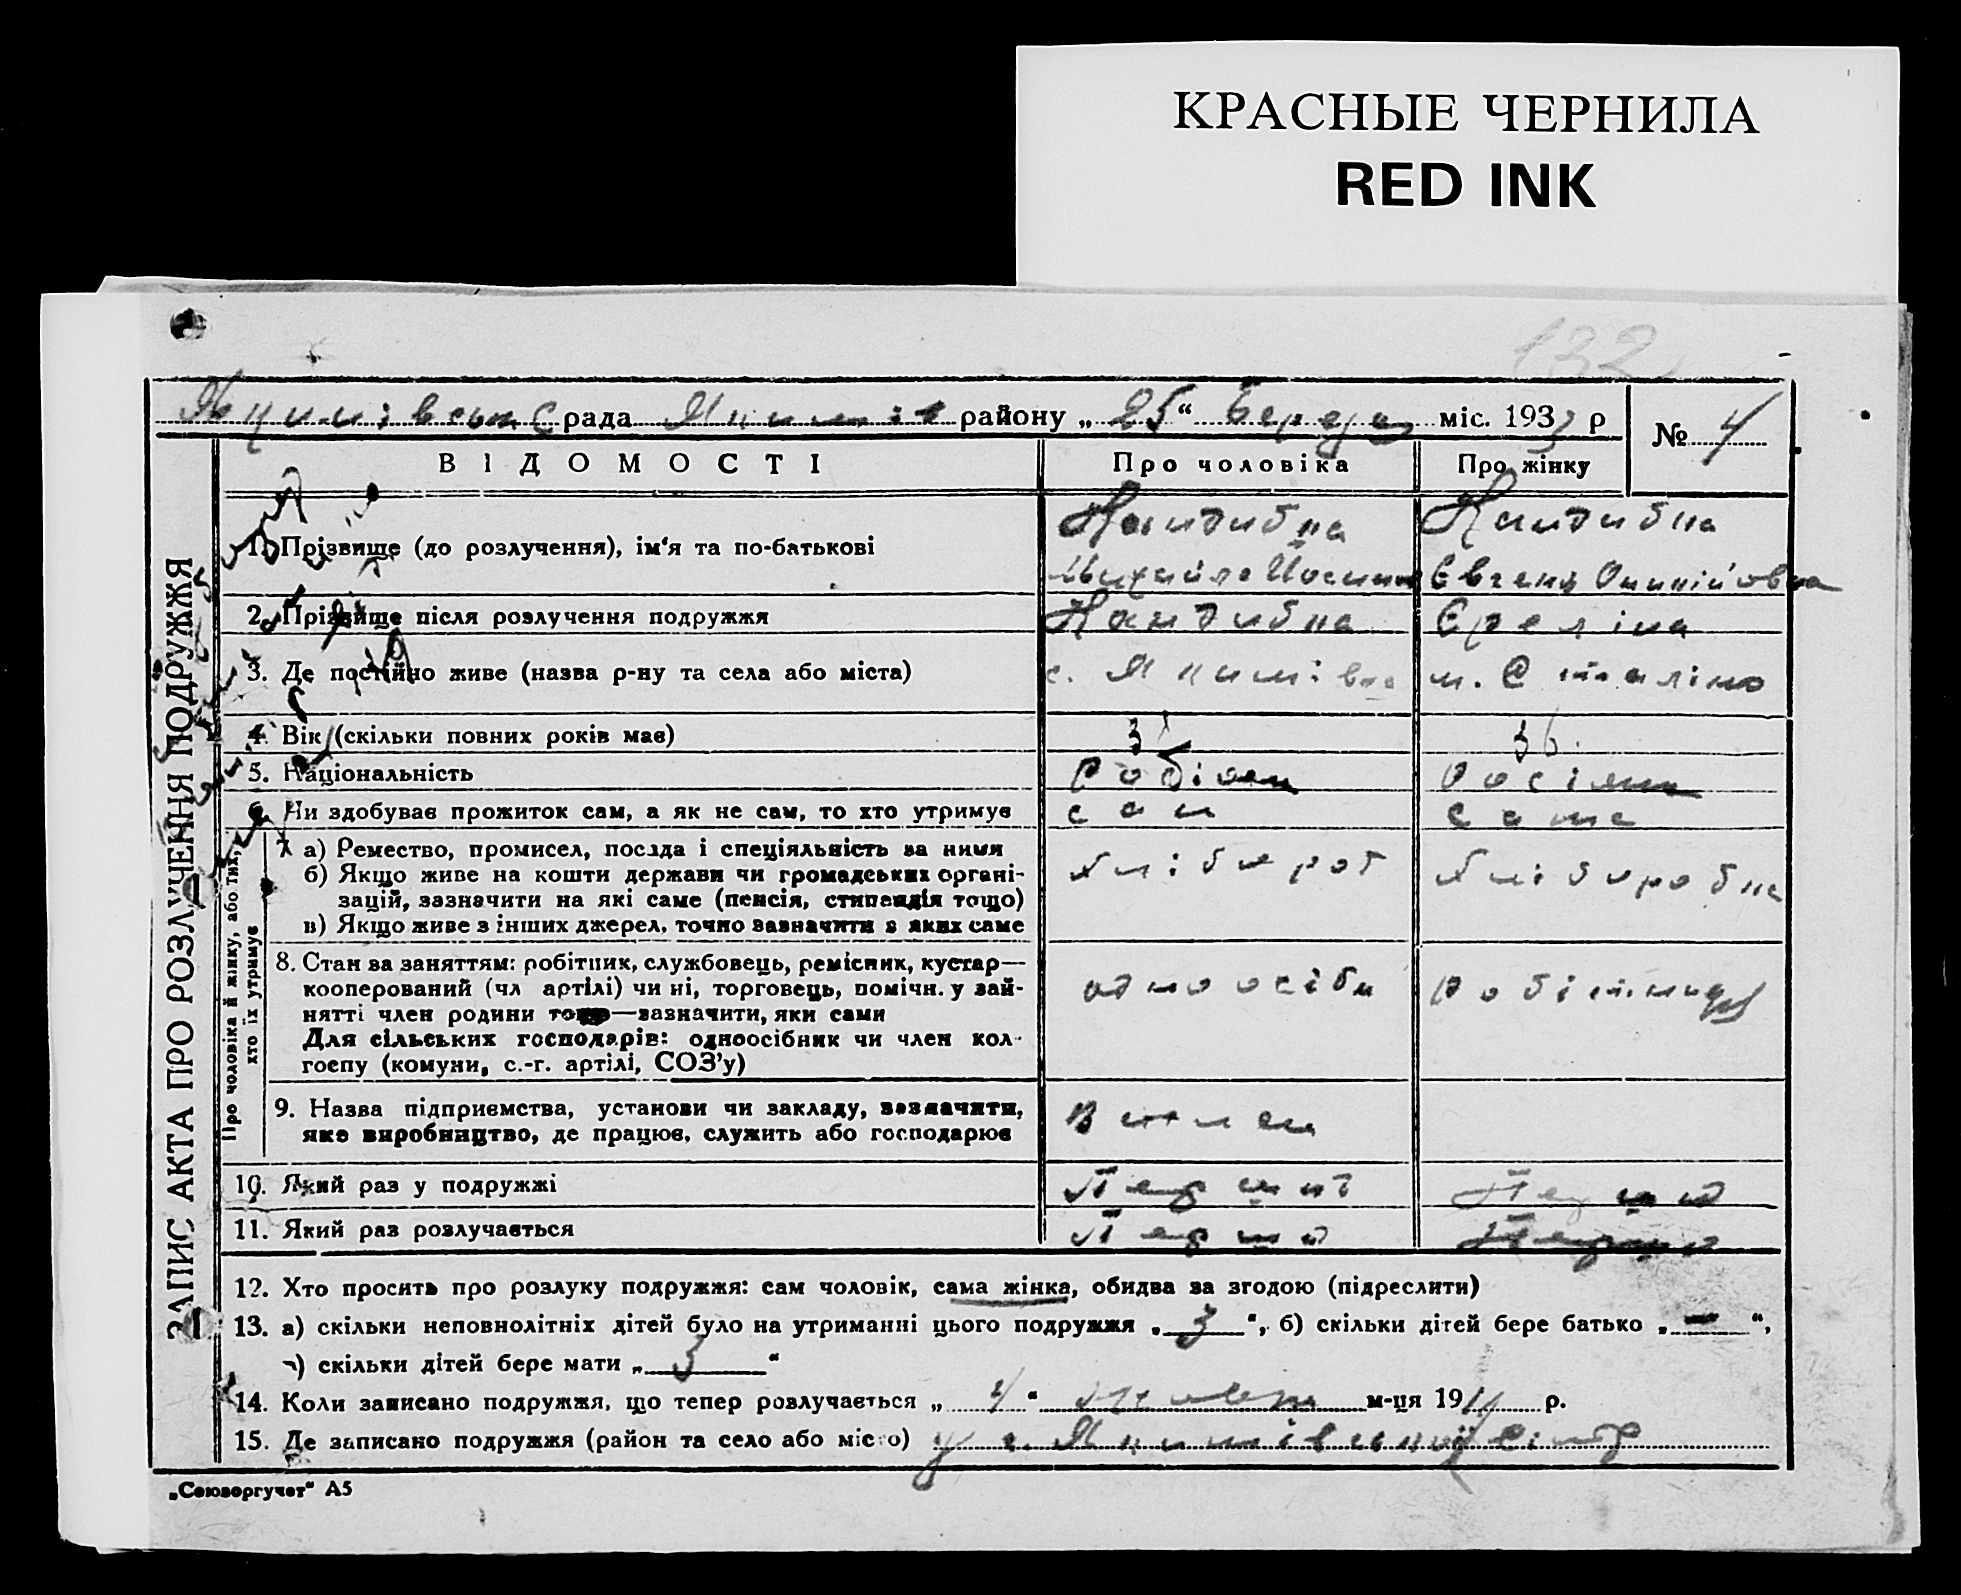 КРАСНЫЕ ЧЕРНИЛА
RED INK
132
рада Якимів району „25“ Березня міс. 1933 р № 4
ЗАПИС АКТА ПРО РОЗЛУЧЕННЯ ПОДРУЖЖЯ
ВІДОМОСТІ Про чоловіка Про жінку
1. Прізвище (до розлучення), ім'я та по-батькові
Кандибка Кандибка
Михайло Євгенія
2. Прізвище після розлучення подружжя Кандибка Єреліна
3. Де постійно живе (назва р-ну та села або міста) с. Якимівка м. Сталіно
4. Вік (скільки повних років має) 36.
5. Національність росіян
6. Чи здобуває прожиток сам, а як не сам, то хто утримує сам сама
Про чоловіка й жінку, або тих, хто їх утримує
7 а) Ремество, промисел, посада і спеціяльність за ними хлібороб хліборобка
б) Якщо живе на кошти держави чи громадських органі-
зацій, зазначити на які саме (пенсія, стипендія тощо)
в) Якщо живе з інших джерел, точно зазначити з яких саме
8. Стан за заняттям: робітник, службовець, ремісник, кустар—
кооперований (чл артілі) чи ні, торговець, помічн. у зай-
нятті член родини тощо—зазначити, яки сами
одноосібн робітниця
Для сільських господарів: одноосібник чи член кол-
госпу (комуни, с.-г. артілі, СОЗ'у)
9. Назва підприємства, установи чи закладу, зазначити,
яке виробництво, де працює, служить або господарює
10. Який раз у подружжі Перший Перший
11. Який раз розлучається Перший Перший
12. Хто просить про розлуку подружжя: сам чоловік, сама жінка, обидва за згодою (підреслити)
13. а) скільки неповнолітніх дітей було на утриманні цього подружжя „3“, б) скільки дітей бере батько „—“,
в) скільки дітей бере мати „3“
14. Коли записано подружжя, що тепер розлучається „ “ м-ця 19 р.
15. Де записано подружжя (район та село або місто) у с. Якимівській
„Союзоргучет“ А5